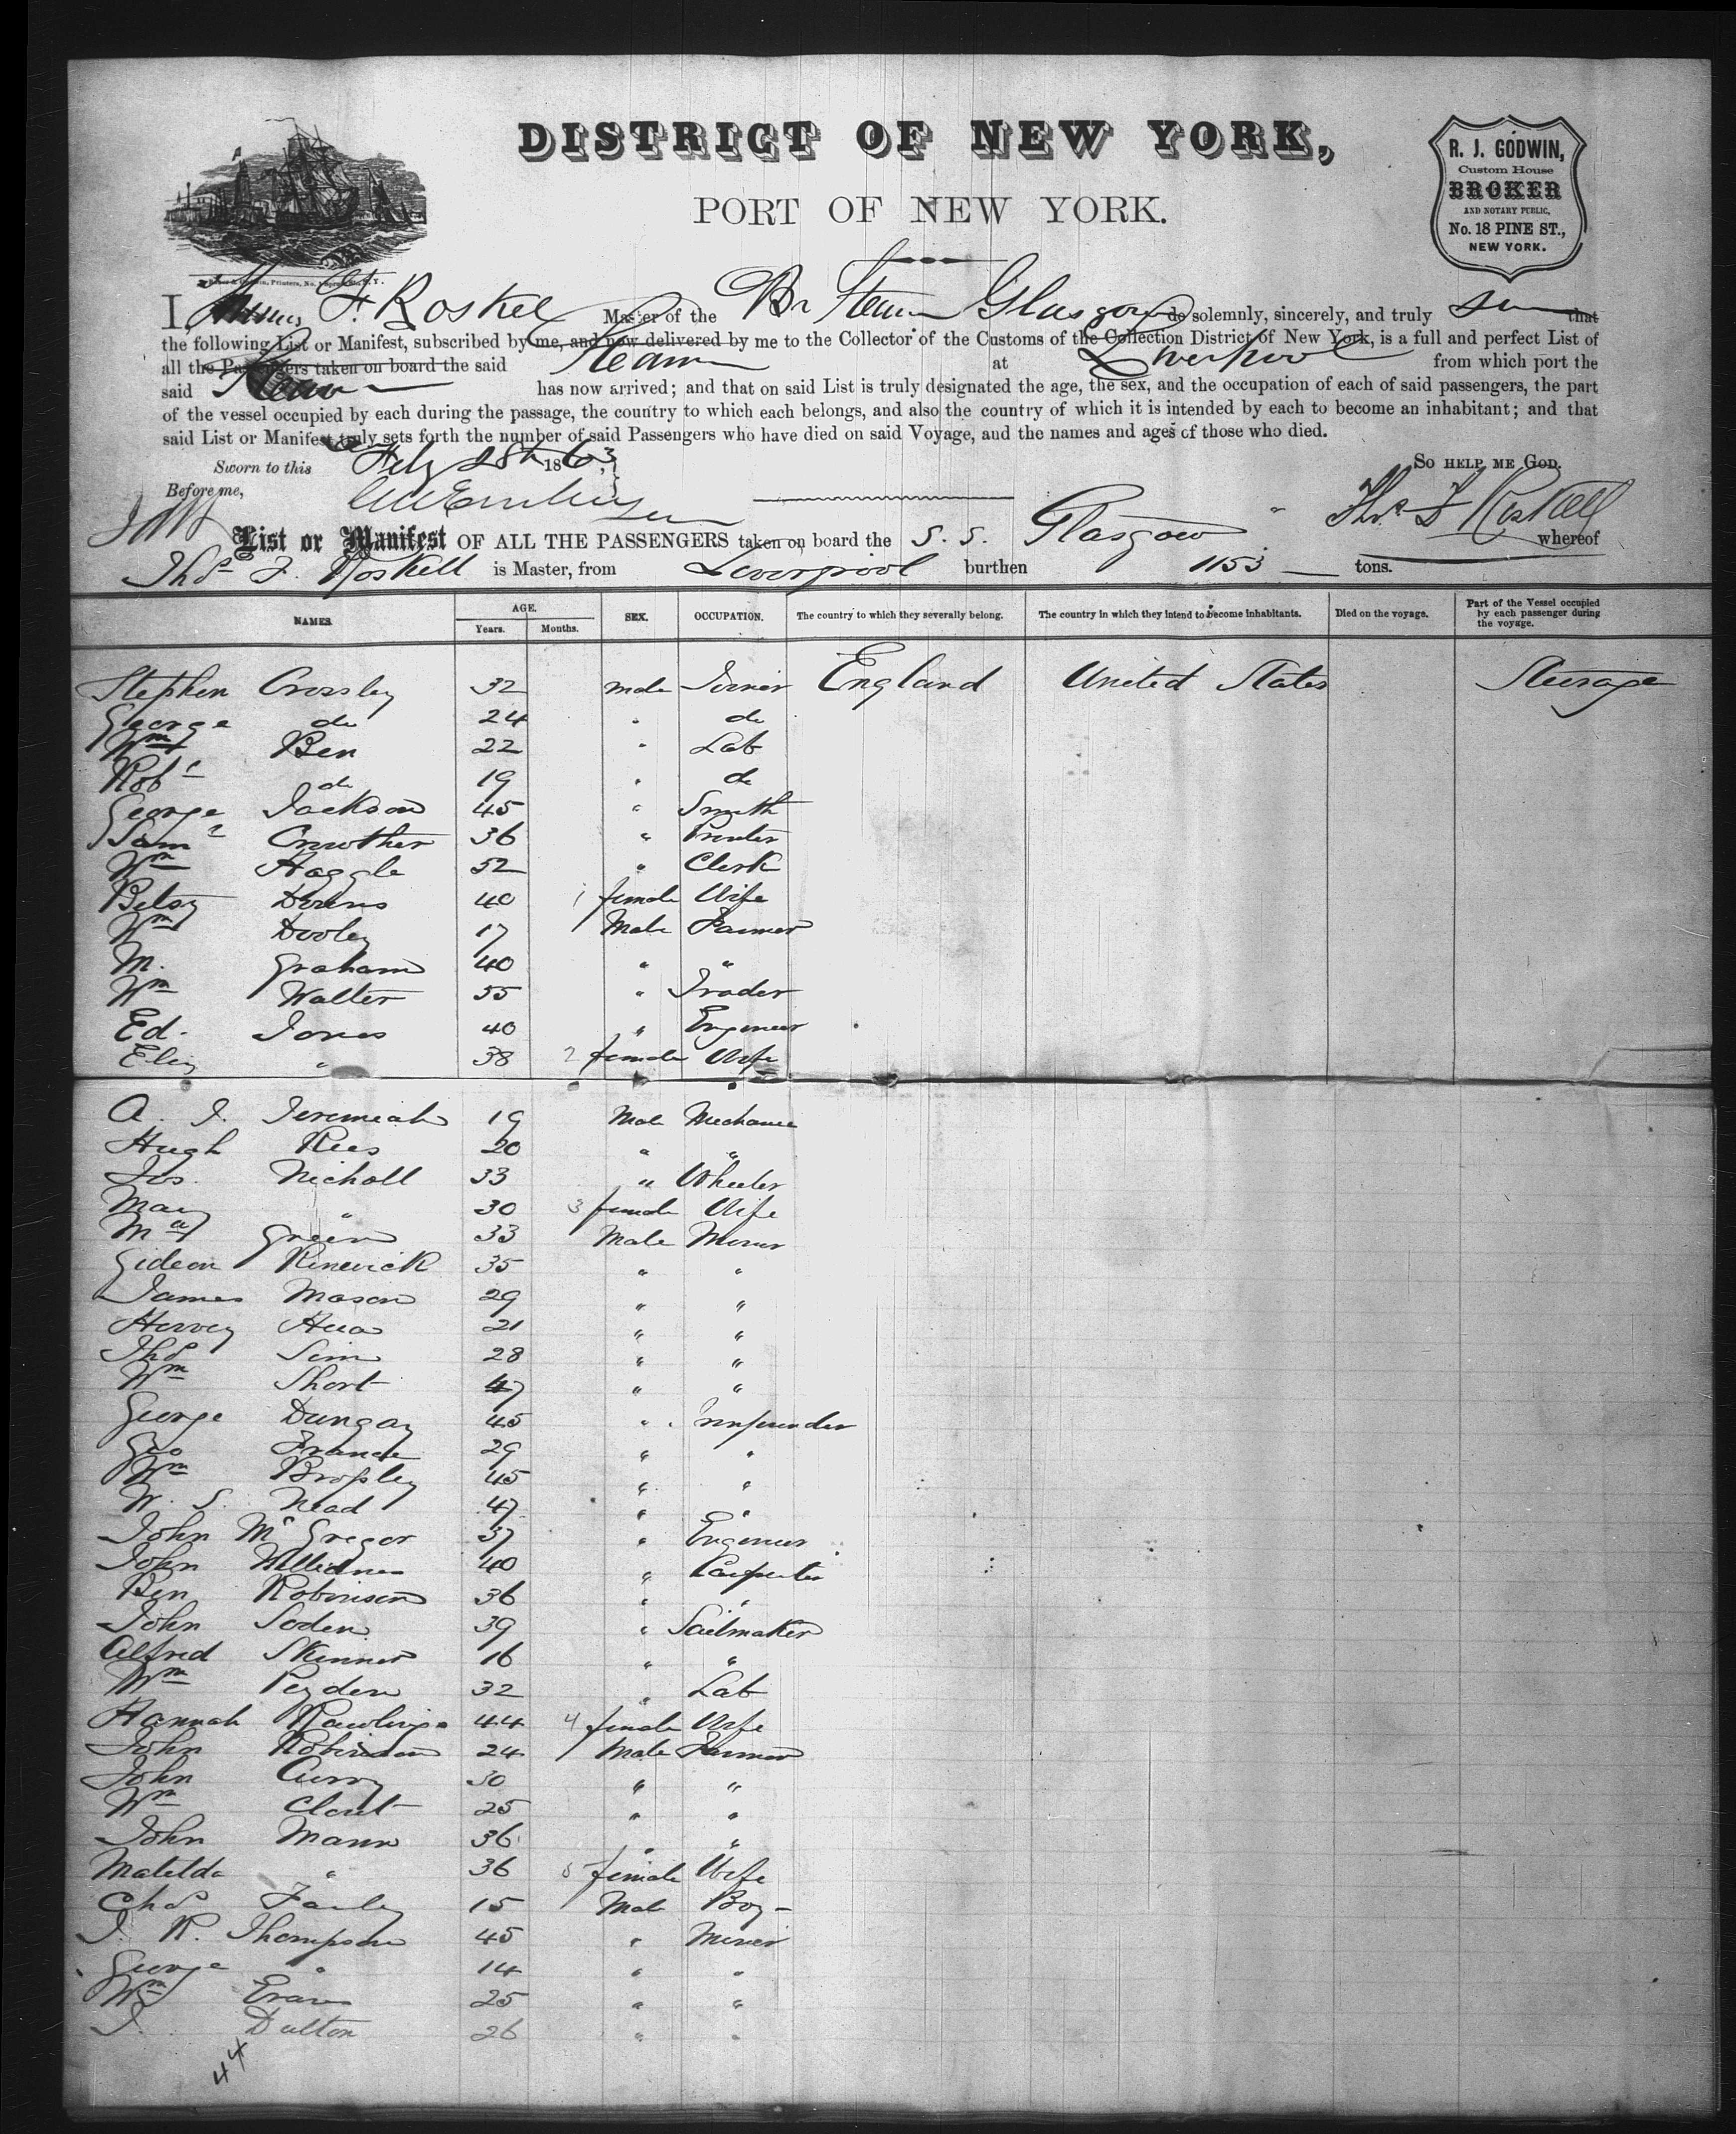 DISTRICT OF NEW YORK,
PORT OF NEW YORK.
R. J. GODWIN,
Custom House
BROKER
AND NOTARY PUBLIC,
No. 18 PINE ST.,
NEW YORK.
I, F. Roskell Master of the Br Steam Glasgow do solemnly, sincerely, and truly that
the following List or Manifest, subscribed by me, and now delivered by me to the Collector of the Customs of the Collection District of New York, is a full and perfect List of
all the Passengers taken on board the said Steam at Liverpool from which port the
said Steam has now arrived; and that on said List is truly designated the age, the sex, and the occupation of each of said passengers, the part
of the vessel occupied by each during the passage, the country to which each belongs, and also the country of which it is intended by each to become an inhabitant; and that
said List or Manifest truly sets forth the number of said Passengers who have died on said Voyage, and the names and ages of those who died.
Sworn to this Feby 28th 1863 So help me God.
Before me, Thos F Roskell
List or Manifest OF ALL THE PASSENGERS taken on board the S. S. Glasgow whereof
Thos F. Roskell is Master, from Liverpool burthen 1153 tons.
NAMES. AGE. Years. Months. SEX. OCCUPATION. The country to which they severally belong. The country in which they intend to become inhabitants. Died on the voyage. Part of the Vessel occupied by each passenger during the voyage.
Stephen Crossley 32 male Joiner England United States Steerage
George do 24 " do
Wm Ben 22 " Lab
Robt do 19 " do
George Jackson 45 " Smith
Saml Crowther 36 " Printer
Wm Haggle 52 " Clerk
Betsy Downs 40 1 female Wife
Wm Dooley 17 Male Farmer
M. Graham 40 " "
Wm Walter 55 " Trader
Ed. Jones 40 " Engineer
Eliz " 38 2 female Wife
A. J. Jeremiah 19 Male Mechanic
Hugh Rees 20 " "
Jos. Nicholl 33 " Wheeler
Mary " 30 3 female Wife
Green 33 Male Miner
Gideon Renwick 35 " "
James Mason 29 " "
Harvey 21 " "
Thos Sim 28 " "
Wm Short 47 " "
George Dungay 45 "
Geo France 29 " "
Wm Brossley 45 " "
W. S. Nead 47 " "
John McGregor 37 " Engineer
John Williams 40 " Carpenter
Ben Robinson 36 " "
John Soden 39 " Sailmaker
Alfred Skinner 16 " "
Wm Peyden 32 " Lab
Hannah Rawlings 44 4 female Wife
John Robinson 24 Male Farmer
John Curry 30 " "
Wm Clout 25 " "
John Mann 36 " "
Matilda " 36 5 female Wife
Chas Farley 15 Male Boy
J. R. Thompson 45 " Miner
George " 14 " "
Wm Evans 25 " "
J. Dalton 26 " "
44